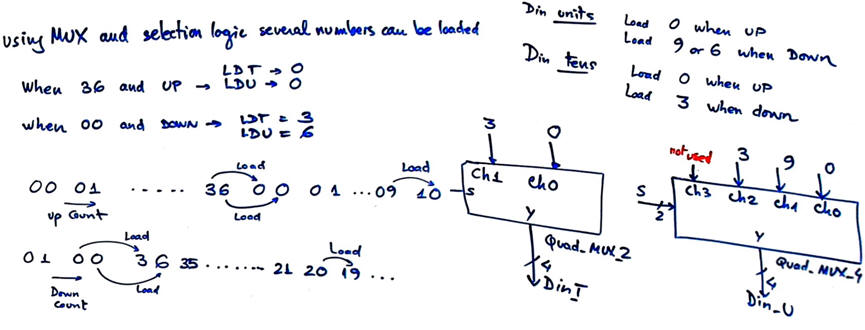 using MUX and selection logic several numbers can be loaded
When 36 and UP → LDT → 0
LDU → 0
when 00 and DOWN → LDT = 3
LDU = 6
Din units Load 0 when UP
Load 9 or 6 when Down
Din tens Load 0 when UP
Load 3 when down
Load Load
00 01 ..... 36 00 01 ...09 10
up count Load
Load Load
01 00 36 35 ........ 21 20 19 ...
Down count Load
3 0
ch1 ch0
S
Y
Quad_MUX_2
4
Din_T
not used 3 9 0
ch3 ch2 ch1 ch0
S
2
Y
Quad_MUX_4
4
Din_U